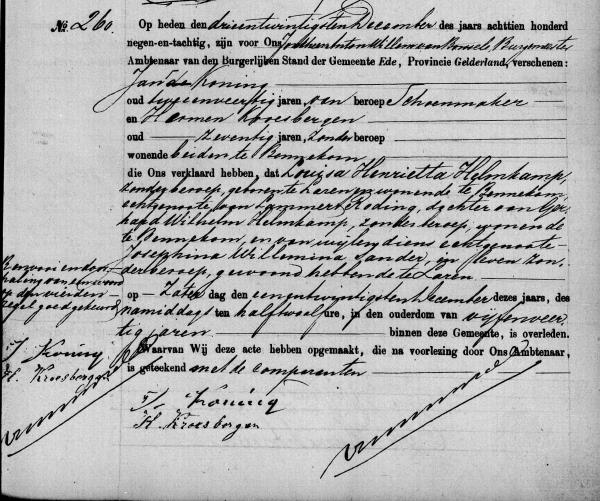 No. 260.
Op heden den drieentwintigsten December des jaars achttien honderd
negen-en-tachtig, zijn voor Ons, Willem van Borssele, Burgemeester
Ambtenaar van den Burgerlijken Stand der Gemeente Ede, Provincie Gelderland, verschenen:
Jan de Koning
oud tweeenveertig jaren, van beroep Schoenmaker
en Harmen Kroesbergen
oud zeventig jaren, zonder beroep
wonende beiden te Bennekom
die Ons verklaard hebben, dat Louisa Henrietta Helmkamp,
zonder beroep, geboren te Laren en wonende te Bennekom,
echtgenoote van Lammert Roding, dochter van Ger-
hard Wilhelm Helmkamp, zonder beroep, wonende
te Bennekom, en van wijlen diens echtgenoote
Josephina Willemina Sander, in leven zon-
der beroep, gewoond hebbende te Laren
op Zaterdag den eenentwintigsten December dezes jaars, des
namiddags ten half twaalf ure, in den ouderdom van vijfenveer-
tig jaren binnen deze Gemeente, is overleden.
Waarvan Wij deze acte hebben opgemaakt, die na voorlezing door Ons Ambtenaar,
is geteekend met de comparanten
J Koning
H. Kroesbergen
haling van een woord
op den vierden
regel goedgekeurd
J Koning
H. Kroesbergen